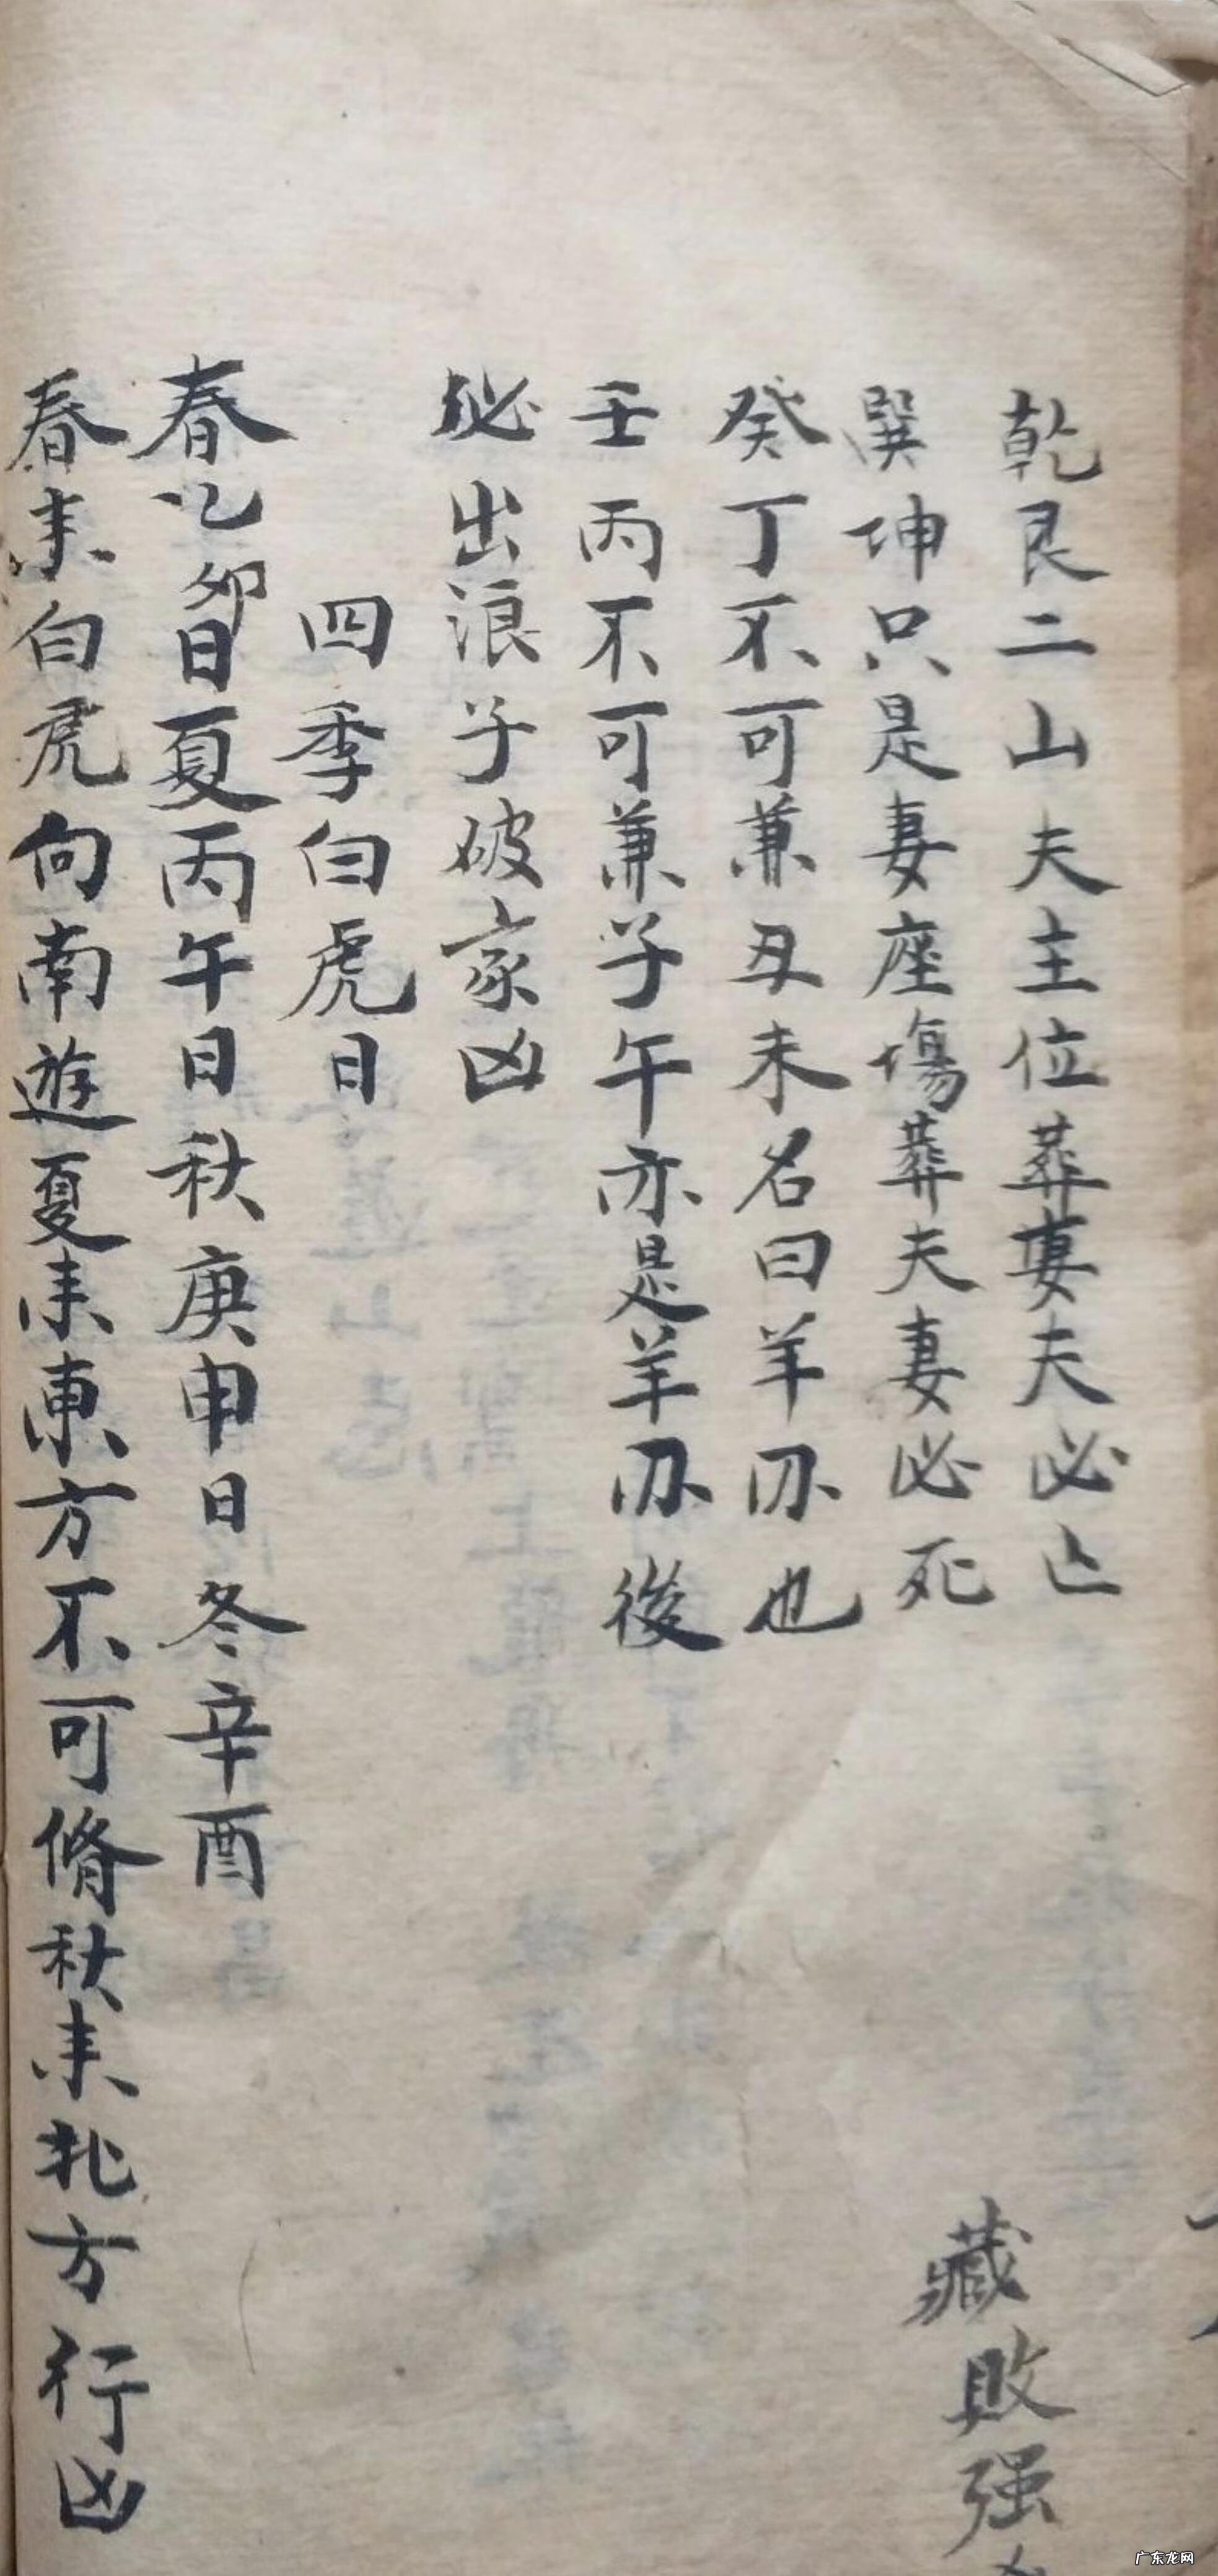 乾艮二山夫主位葬妻夫必亡
巽坤只是妻座塲葬夫妻必死
癸丁不可兼丑未名曰羊刃也
壬丙不可兼子午亦是羊刃後
必出浪子破家凶
四季白虎日
春乙卯日夏丙午日秋庚申日冬辛酉
春来白虎向南遊夏来東方不可脩秋来北方行凶
藏敗强
广东龙网